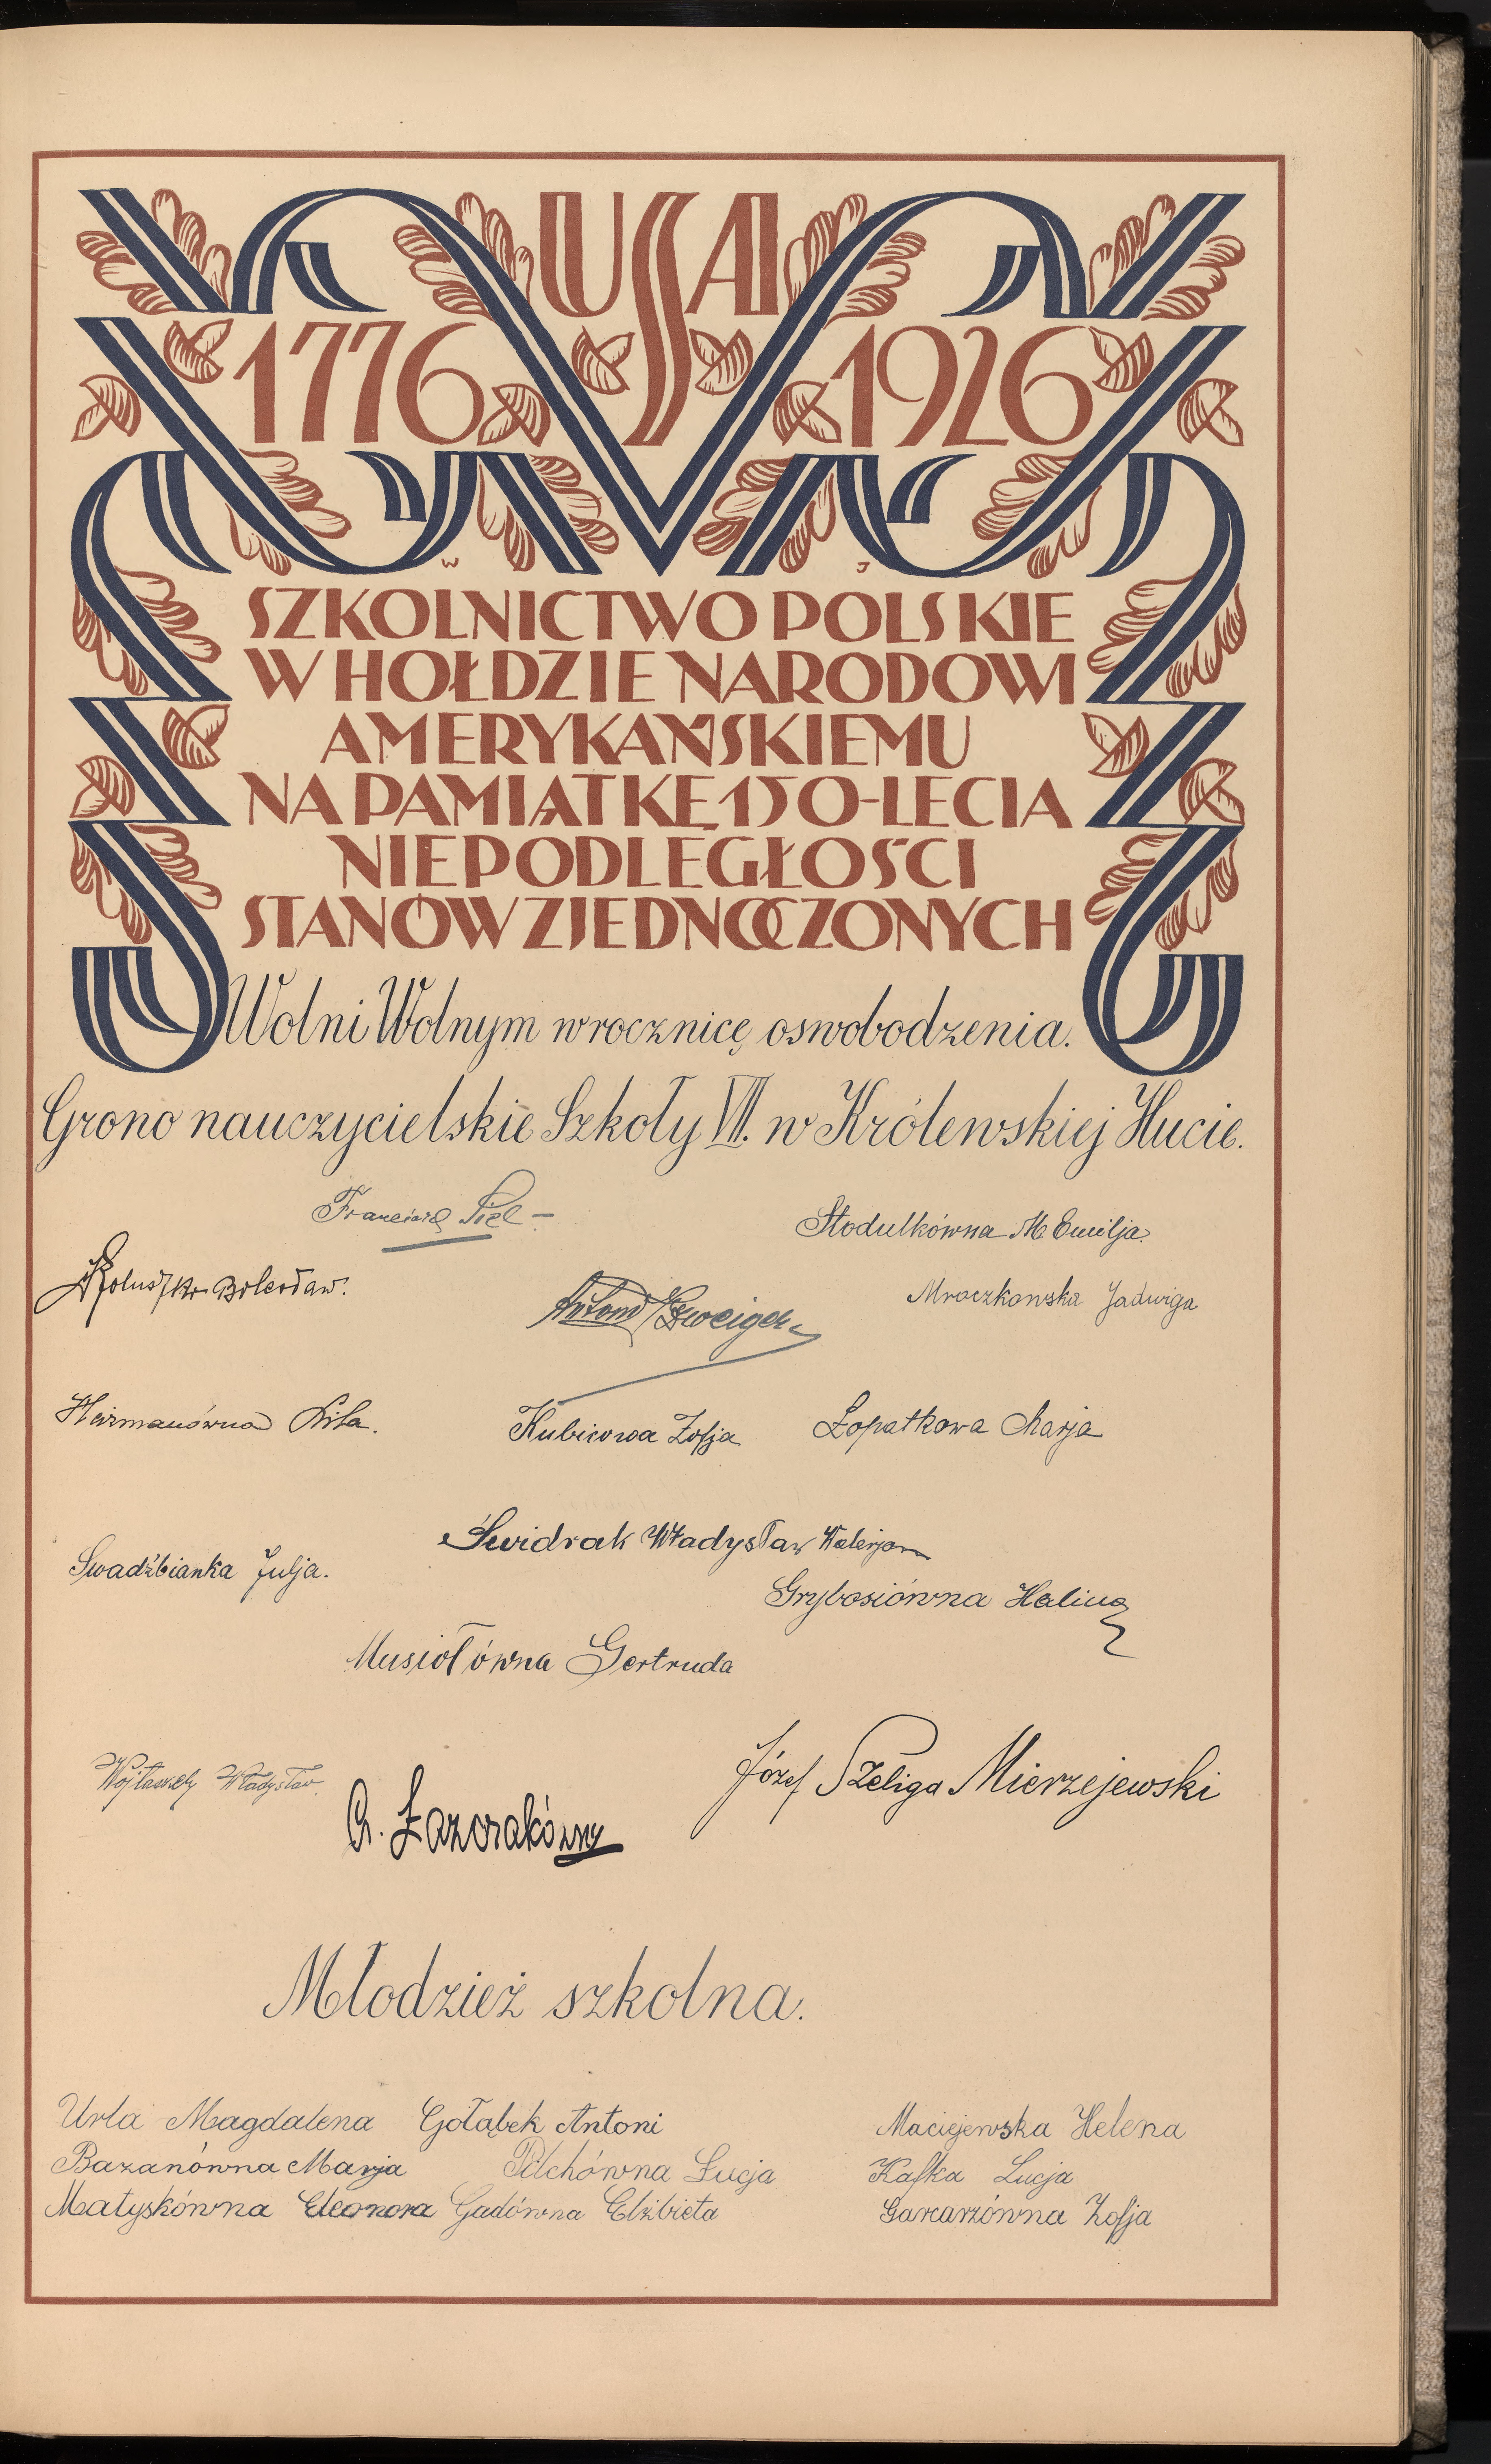 USA
1776 1926
W J
SZKOLNICTWO POLSKIE
W HOŁDZIE NARODOWI
AMERYKAŃSKIEMU
NA PAMIĄTKĘ 150-LECIA
NIEPODLEGŁOŚCI
STANÓW ZJEDNOCZONYCH
Wolni Wolnym w rocznicę oswobodzenia.
Grono nauczycielskie Szkoły VII. w Królewskiej Hucie.
Franciszek
Stodulkówna M. Emilja
Bolesław.
Mroczkowska Jadwiga
Antoni
Kubicowa Zofja
Łopatkowa Marja
Świdrak Władysław Walerjan
Swadźbianka Julja.
Grybosiówna Halina
Musiołówna Gertruda
Władysław
Józef Szeliga Mierzejewski
Młodzież szkolna.
Urla Magdalena Gołąbek Antoni Maciejewska Helena
Bazanówna Marja Pilchówna Łucja Kafka Lucja
Matyskówna Eleonora Gadówna Elżbieta Garcarzówna Zofja